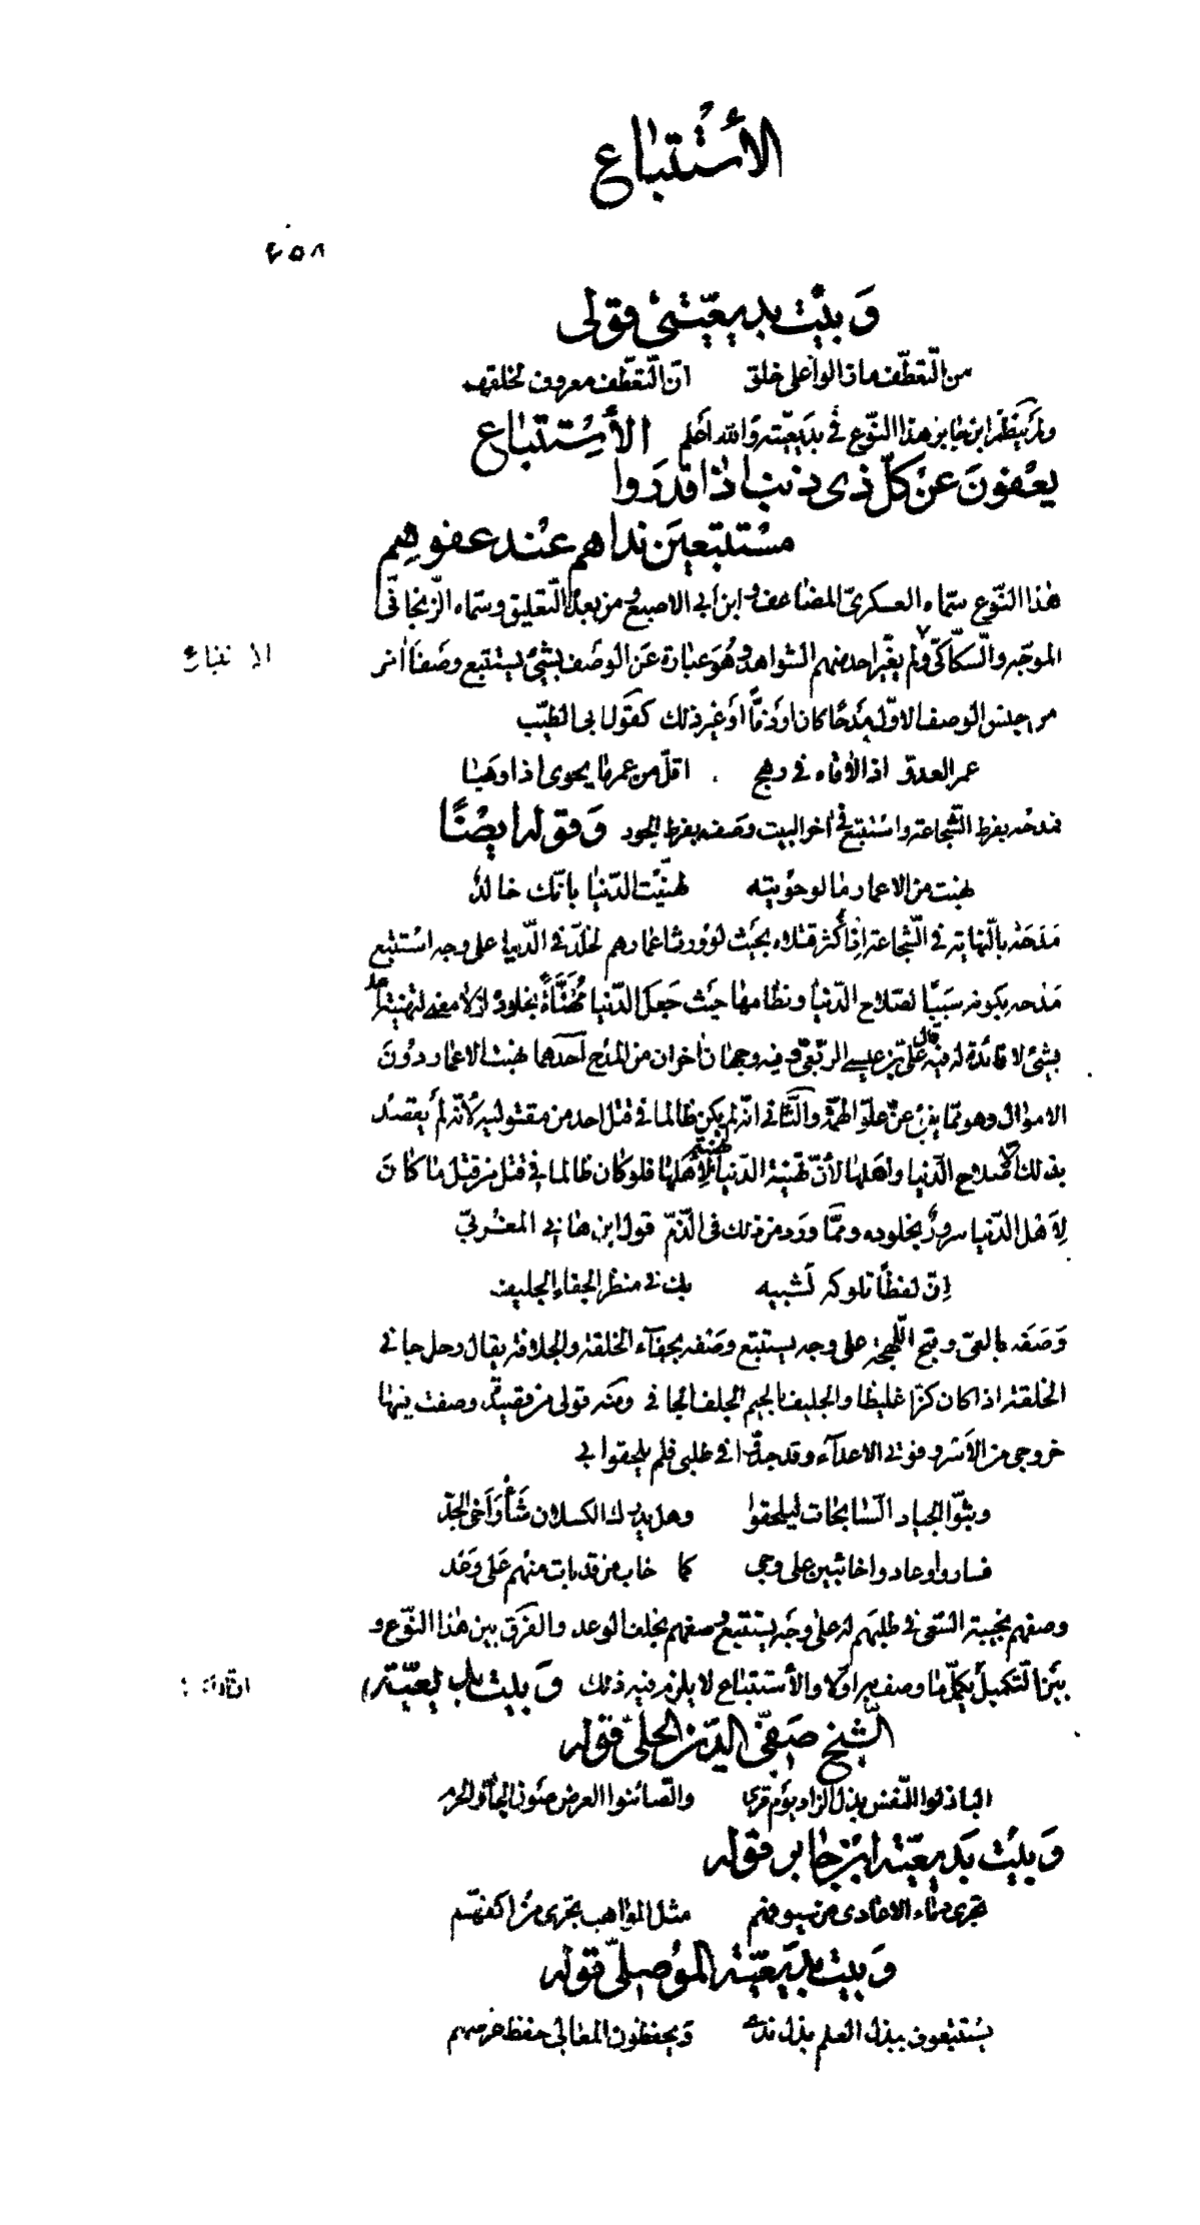 الأستتباع
٤٥٨
وبيت بديعيتي قولي
من التعطف ما زالوا على خلق انّ التعطف معروف لخلقهم
ولم ينظم ابن جابر هذا النّوع في بديعيّته والله اعلم الأستتباع
يعفون عن كلّ ذي ذنب اذا قدروا
مستتبعين نداهم عند عفوهم
هذا النّوع سمّاه العسكريّ المضاعف وابن ابي الاصبع ومن بعده التعليق وسمّاه الزّنجانيّ
الموجّه والسّكّاكيّ ولم يغيّر احد منهم الشواهد وهو عبارة عن الوصف بشيئ يستتبع وصفاً اخر
من جنس الوصف الاوّل مدحًا كان او ذمًّا او غير ذلك كقول ابي الطيّب
عمر العدوّ اذا لاقاه في رهج اقلّ من عمر ما يحوى اذا وهبا
فمدحه بفرط الشّجاعة واستتبع في اخر البيت وصفه بفرط الجود وقوله ايضًا
نهبت من الاعمار ما لو حويته لهنّيت الدّنيا بانّك خالد
مدحه بالنّهاية في الشّجاعة اذ اكثر قتلاه بحيث لو ورث اعمارهم لخلد في الدّنيا على وجه استتبع
مدحه بكونه سببًا لصلاح الدّنيا ونظامها حيث جعل الدّنيا مهنّأة بخلوده اذ لا معنى لتهنئة احد
بشئ لا فائدة له فيه قال علي بن عيسى الربعي وفيه وجهان اخران من المدح احدهما نهب الاعمار دون
الاموال وهو ممّا ينبئ عن علوّ الهمّة والثّاني انّه لم يكن ظالما في قتل احد من مقتوليه لأنّه لم يقصد
بذلك الا صلاح الدّنيا واهلها لأنّ تهنئة الدّنيا تهنئة لأهلها فلو كان ظالما في قتل من قتل ما كان
لأهل الدّنيا سرورٌ بخلوده وممّا ورد من ذلك في الذّمّ قول ابن هاني المغربيّ
انّ لفظًا تلوكه لشبيه بك في منظر الجفاء الجليف
وصفه بالعيّ وقبح اللّهجة على وجه يستتبع وصفه بجفآء الخلقة والجلافة يقال رجل جافي
الخلقة اذا كان كزّا غليظا والجليف بالجيم الجلف الجافي ومنه قولي من قصيدة وصفت فيها
خروجي من الأسر وفوتي الاعدآء وقد جدّوا في طلبي فلم يلحقوا بي
وبثّوا الجياد السّابحات ليلحقوا وهل يدرك الكسلان شأو اخي الجدّ
فساروا وعادوا خائبين على وجى كما خاب من قد بات منهم على وعد
وصفهم بخيبة السّعي في طلبهم له على وجه يستتبع وصفهم بخلف الوعد والفرق بين هذا النّوع و
بين التّكميل يكمّل ما وصف به اوّلا والأستتباع لا يلزم فيه ذلك وبيت بديعيّة
الشّيخ صفيّ الدّين الحليّ قوله
الباذلوا النّفس بذل الزاد يوم قرى والصّائنوا العرض صون الجار والحرم
وبيت بديعيّة ابن جابر قوله
تجري دماء الاعادي من سيوفهم مثل المواهب تجري من اكفهّم
وبيت بديعيّة الموصليّ قوله
يستتبعون ببذل العلم بذل ندى ويحفظون المعالي حفظ عرضهم